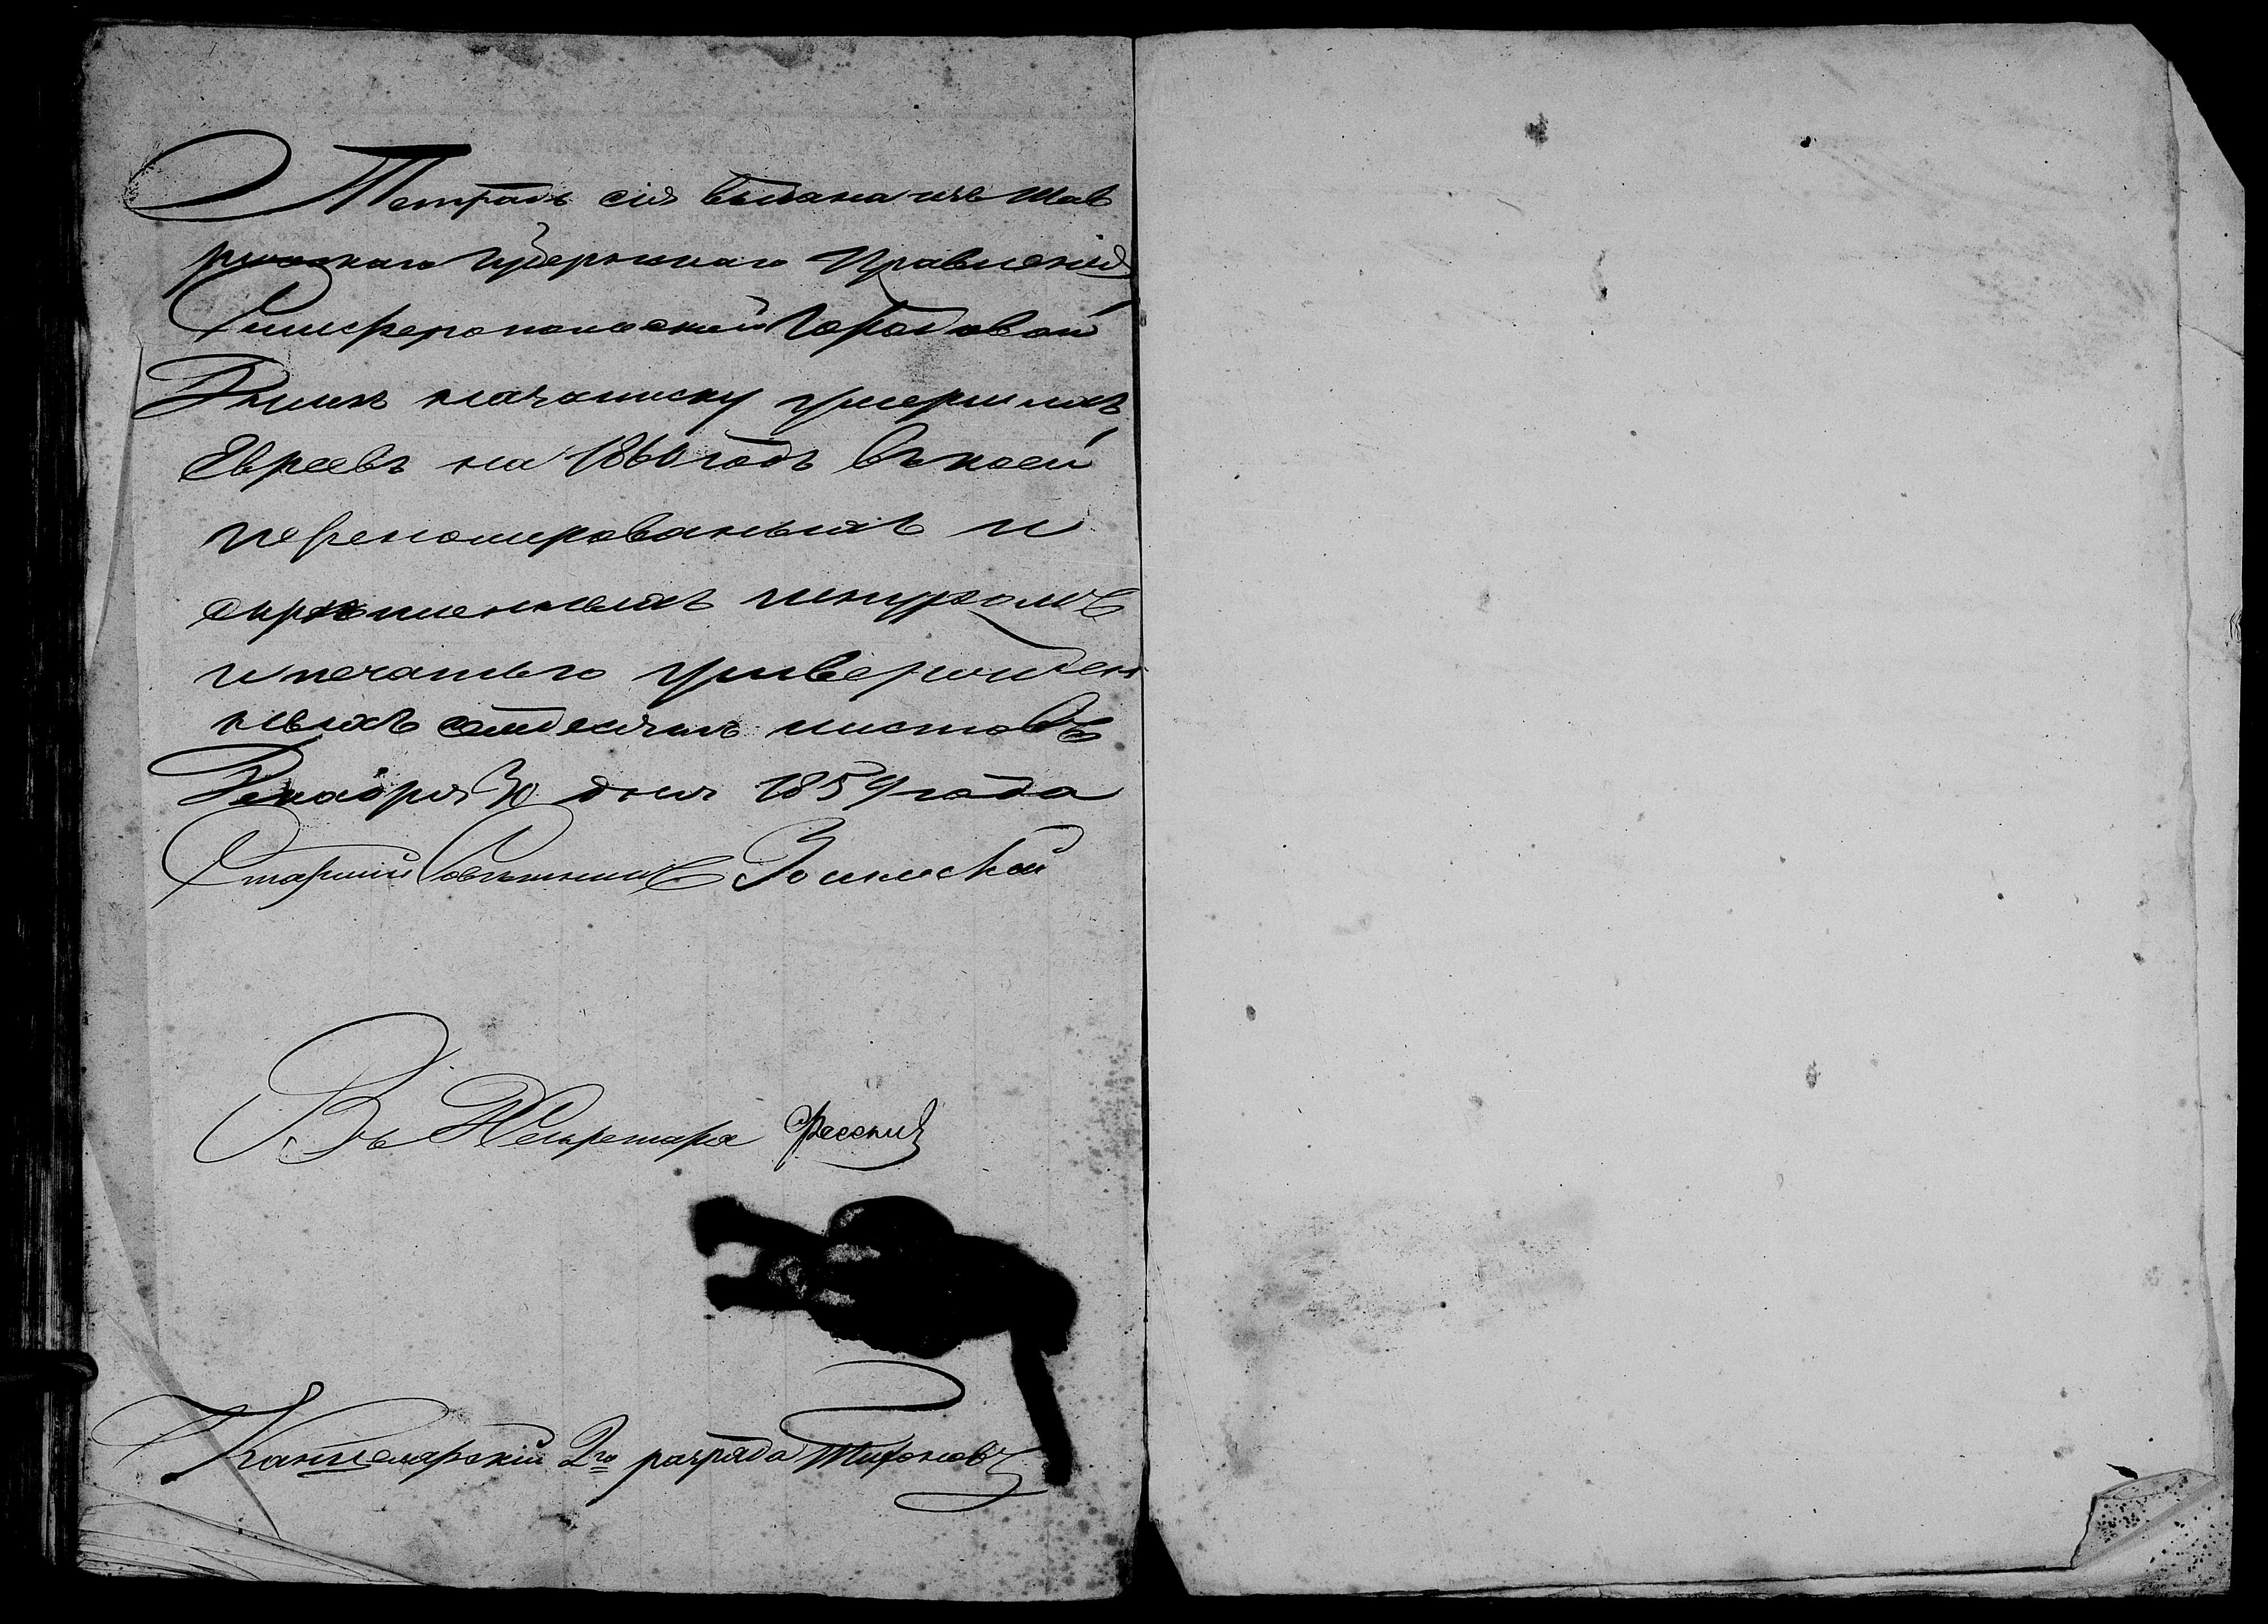 Тетрадь сія выдана изъ Тав
рическаго Губернскаго Правленія
Симферопольской Городовой
Думѣ на записку умершихъ
Евреевъ на 1860 годъ въ коей
переномерованныхъ и
скрѣпленныхъ шнуромъ
и печатью утвержден
ныхъ листовъ
Декабря 30 дня 1859 года
Старшій Совѣтникъ
Въ Секретаря
Канцелярскій 2го разряда Тихоновъ